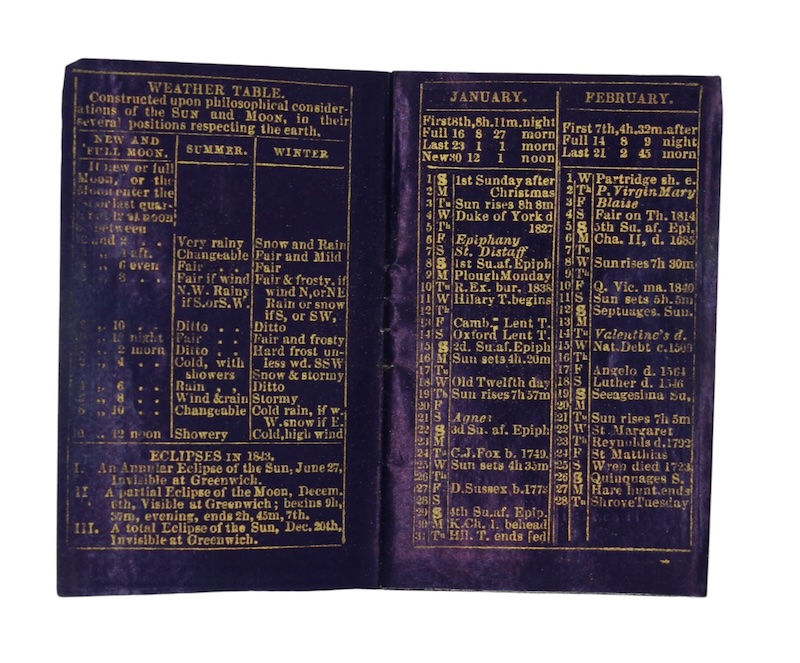 WEATHER TABLE.
Constructed upon philosophical consider-
ations of the SUN and MOON, in their
several positions respecting the earth.
NEW AND FULL MOON. SUMMER. WINTER
If new or full
Moon, or the
Moon enter the
or last quar-
at noon
between
and 2 . . Very rainy Snow and Rain
„ 4 aft. Changeable Fair and Mild
„ 6 even Fair . . Fair
„ 8 . . Fair if wind Fair & frosty, if
N.W. Rainy wind N, or NE
if S. or S.W. Rain or snow
if S, or SW,
„ 10 . . Ditto . . Ditto
night Fair . . Fair and frosty
„ 2 morn Ditto . . Hard frost un-
„ 4 . . Cold, with less wd. SSW
showers Snow & stormy
„ 6 . . Rain . . Ditto
„ 8 . . Wind & rain Stormy
„ 10 . . Changeable Cold rain, if w.
W. snow if E.
„ 12 noon Showery Cold, high wind
ECLIPSES IN 1843.
I. An Annular Eclipse of the Sun, June 27,
Invisible at Greenwich.
II A partial Eclipse of the Moon, Decem.
6th, Visible at Greenwich; begins 9h,
37m, evening, ends 2h, 45m, 7th.
III. A total Eclipse of the Sun, Dec. 20th,
Invisible at Greenwich.
JANUARY.
First 8th, 8h. 11m. night
Full 16 8 27 morn
Last 23 1 1 morn
New 30 12 1 noon
1 S 1st Sunday after
2 M Christmas
3 Tu Sun rises 8h 8m
4 W Duke of York d
5 Th 1827
6 F Epiphany
7 S St. Distaff
8 S 1st Su. af. Epiph
9 M Plough Monday
10 Tu R. Ex. bur. 1838
11 W Hilary T. begins
12 Th
13 F Camb. Lent T.
14 S Oxford Lent T.
15 S 2d. Su. af. Epiph
16 M Sun sets 4h. 20m
17 Tu
18 W Old Twelfth day
19 Th Sun rises 7h 57m
20 F
21 S Agnes
22 S 3d Su. af. Epiph
23 M
24 Tu C.J. Fox b. 1749.
25 W Sun sets 4h 35m
26 Th
27 F D. Sussex b. 1773
28 S
29 S 4th Su. af. Epip.
30 M K. Ch. 1. behead
31 Tu Hil. T. ends
FEBRUARY.
First 7th, 4h. 32m. after
Full 14 8 9 night
Last 21 2 45 morn
1 W Partridge sh. e.
2 Th P. Virgin Mary
3 F Blaise
4 S Fair on Th. 1814
5 S 5th Su. af. Epi.
6 M Cha. II, d. 1685
7 Tu
8 W Sun rises 7h 30m
9 Th
10 F Q. Vic. ma. 1840
11 S Sun sets 5h. 5m
12 S Septuages. Sun.
13 M
14 Tu Valentine's d.
15 W Nat. Debt c. 1500
16 Th
17 F Angelo d. 1564
18 S Luther d. 1546
19 S Sexagesima Su.
20 M
21 Tu Sun rises 7h 5m
22 W St. Margaret
23 Th Reynolds d. 1792
24 F St Matthias
25 S Wren died 1723
26 S Quinquages S.
27 M Hare hunt. ends
28 Tu Shrove Tuesday